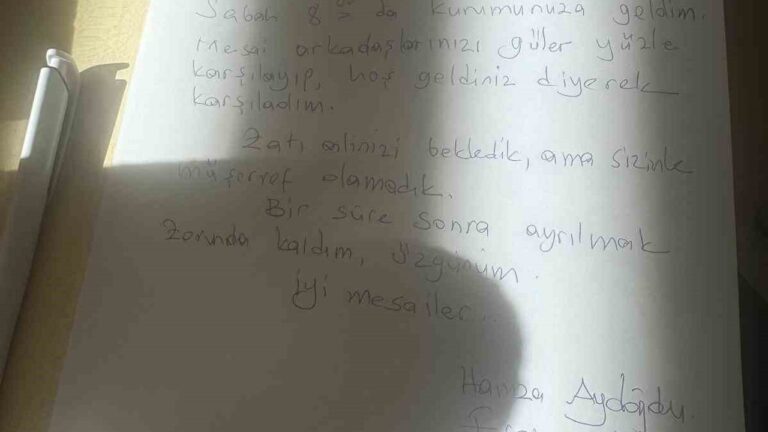 Sabah 8 00 da kurumunuza geldim.
Mesai arkadaşlarınızı güler yüzle
karşılayıp, hoş geldiniz diyerek
karşıladım.
Zatı alinizi bekledik, ama sizinle
müşerref olamadık.
Bir süre sonra ayrılmak
Zorunda kaldım, üzgünüm.
İyi mesailer..
Hamza Aydoğdu